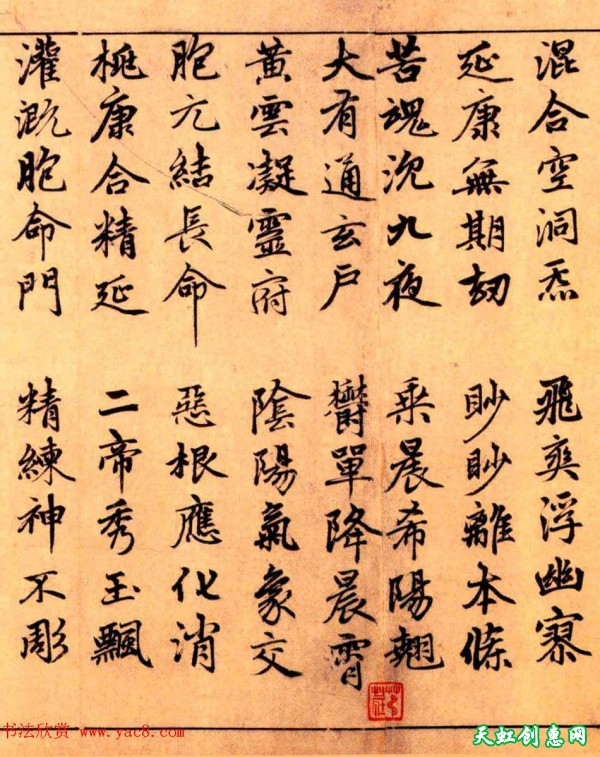 混合空洞炁 飛爽浮幽寥
延康無期劫 眇眇離本條
苦魂沉九夜 乘晨希陽翹
大有通玄戶 鬱單降晨霄
黃雲凝靈府 陰陽氣象交
胞元結長命 惡根應化消
桃康合精延 二帝秀玉飄
灌溉胞命門 精練神不彫
书法欣赏 www.yac8.com
天虹创惠网